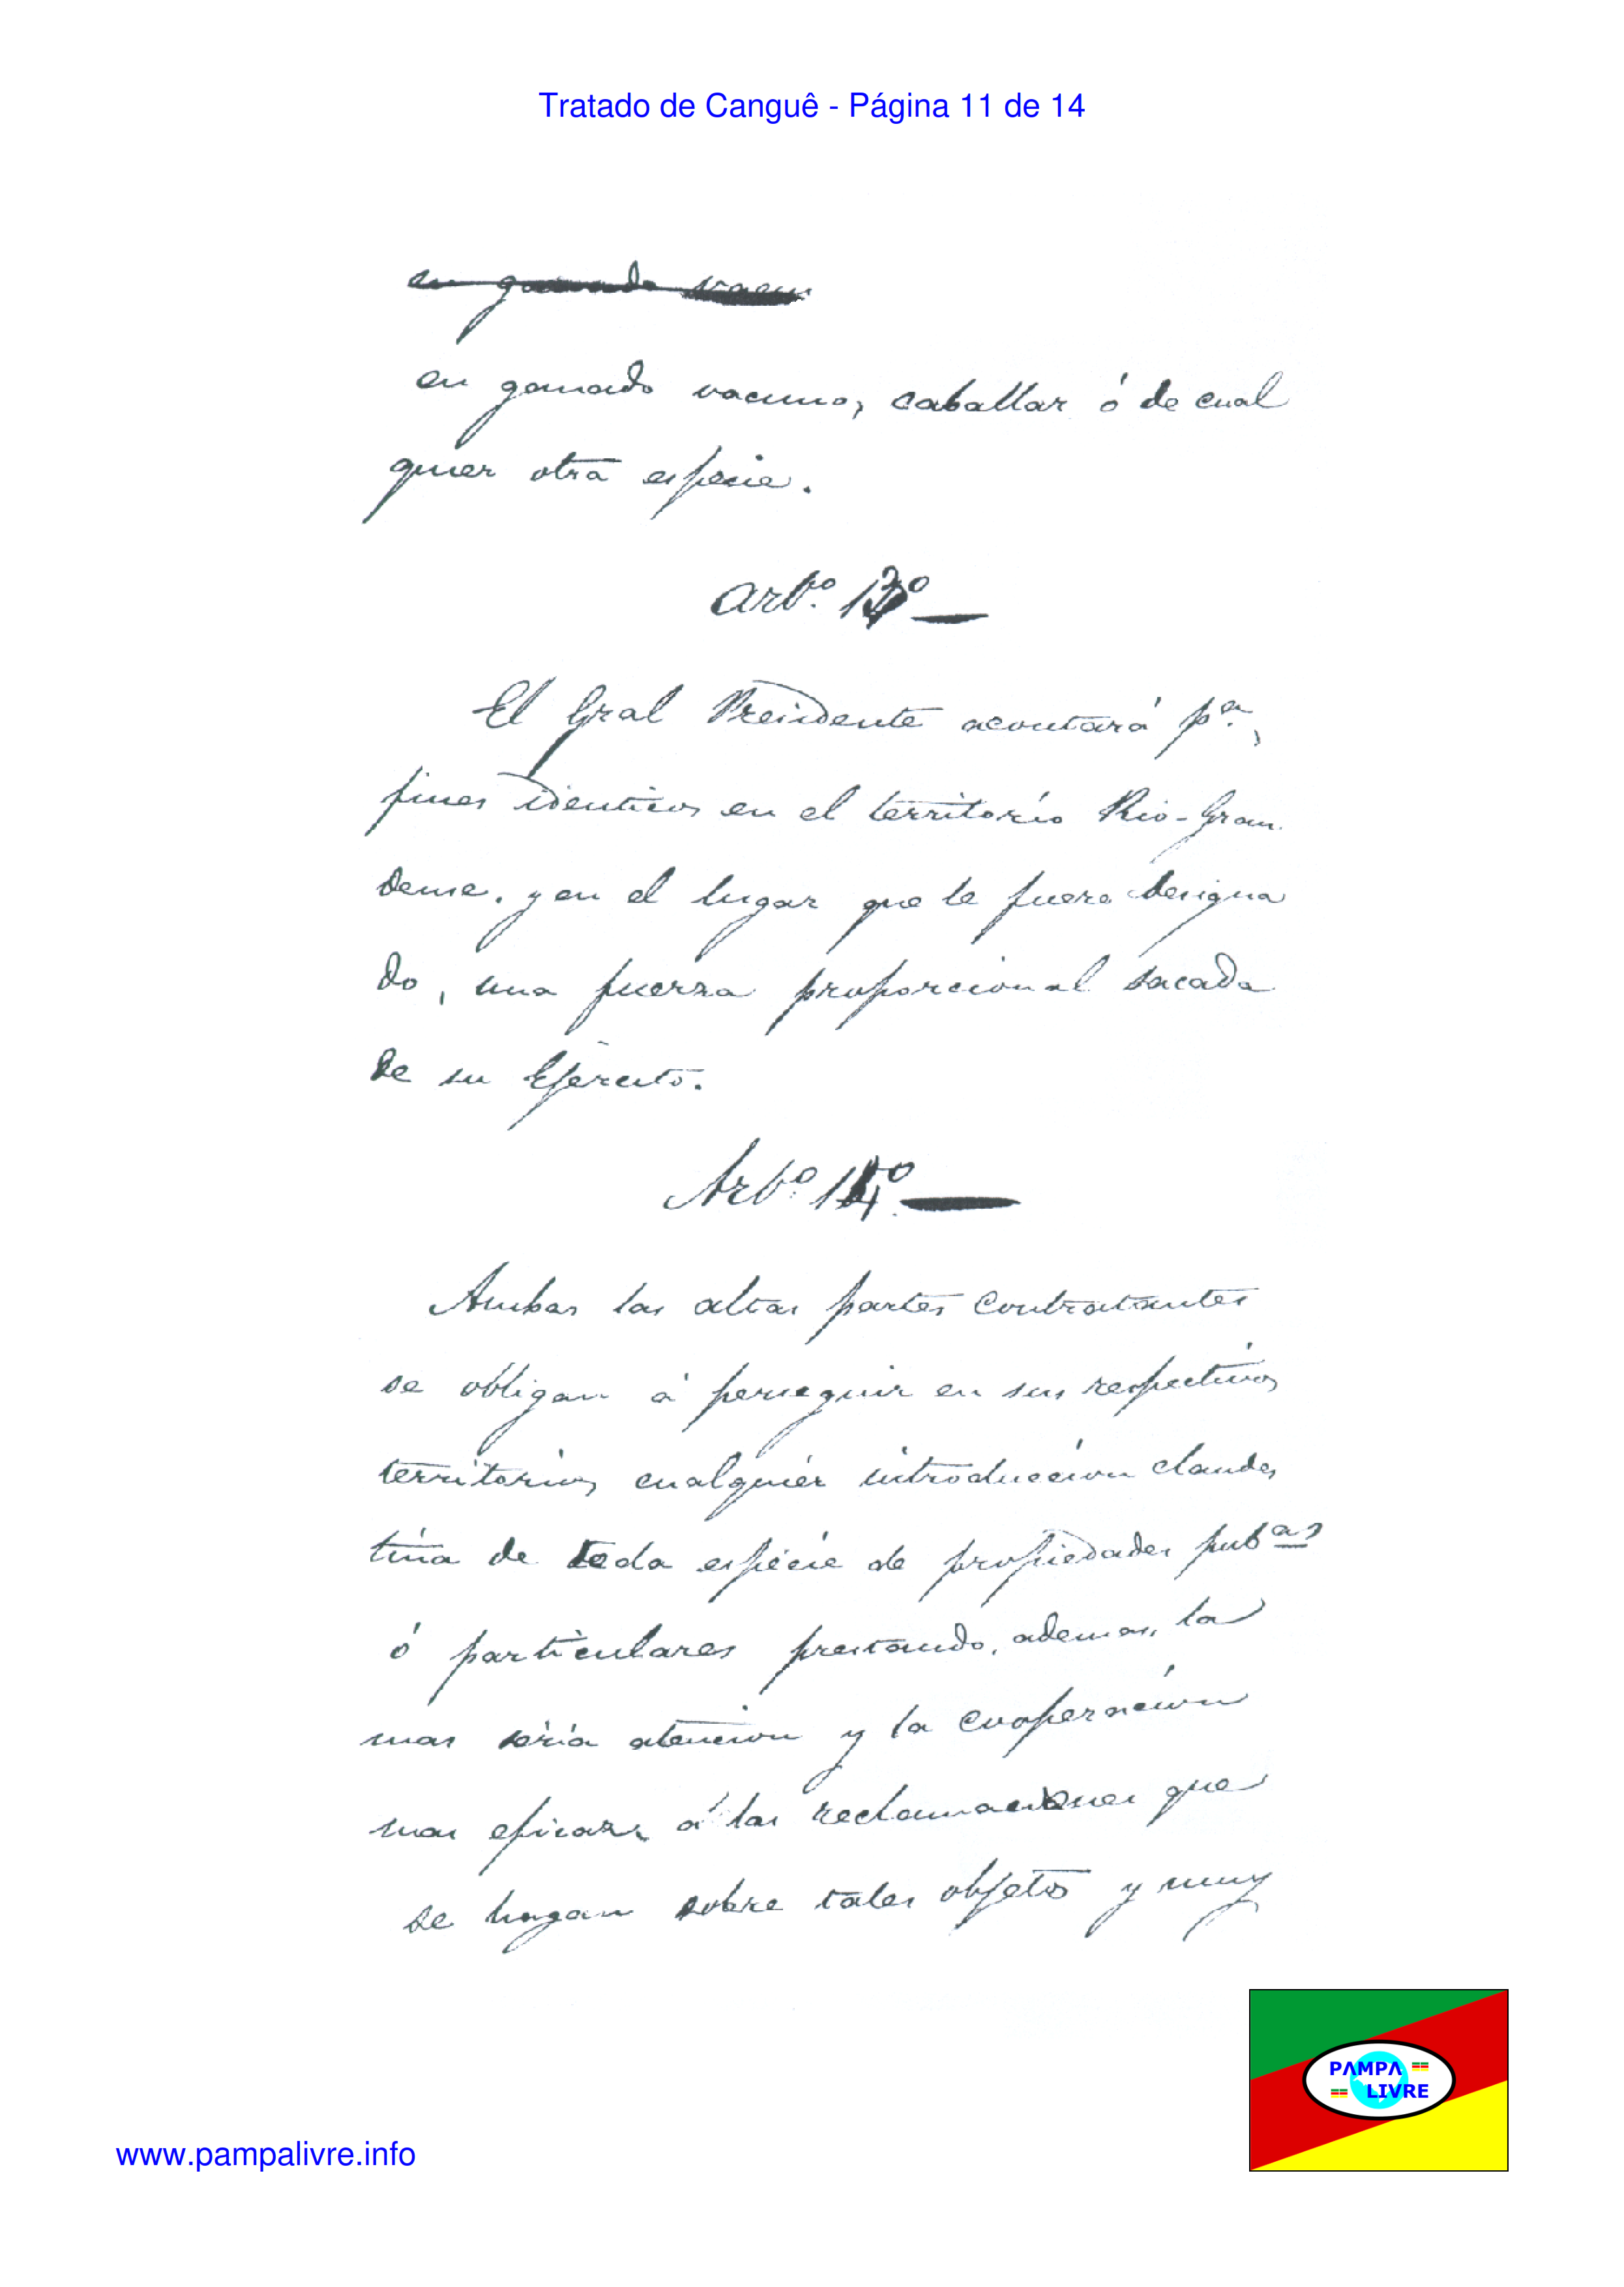 Tratado de Canguê - Página 11 de 14
en ganado vacu
en ganado vacuno, caballar ó de cual
quier otra especie.
Artº. 13º
El Gral Presidente acontará pª,
fines identicos en el territorio Rio-Gran
dense, y en el lugar que le fuere designa
do, una fuerza proporcional sacada
de su Ejército.
Artº. 14º
Ambas las altas partes contratantes
se obligan á perseguir en sus respectivos
territorios, cualquier introduccion clandes
tina de toda especie de propiedades pubas
ó particulares prestando, ademas, la
mas séria atencion y la cooperacion
mas eficaz, á las reclamaciones que
se hagan sobre tales objetos y muy
PAMPA
LIVRE
www.pampalivre.info